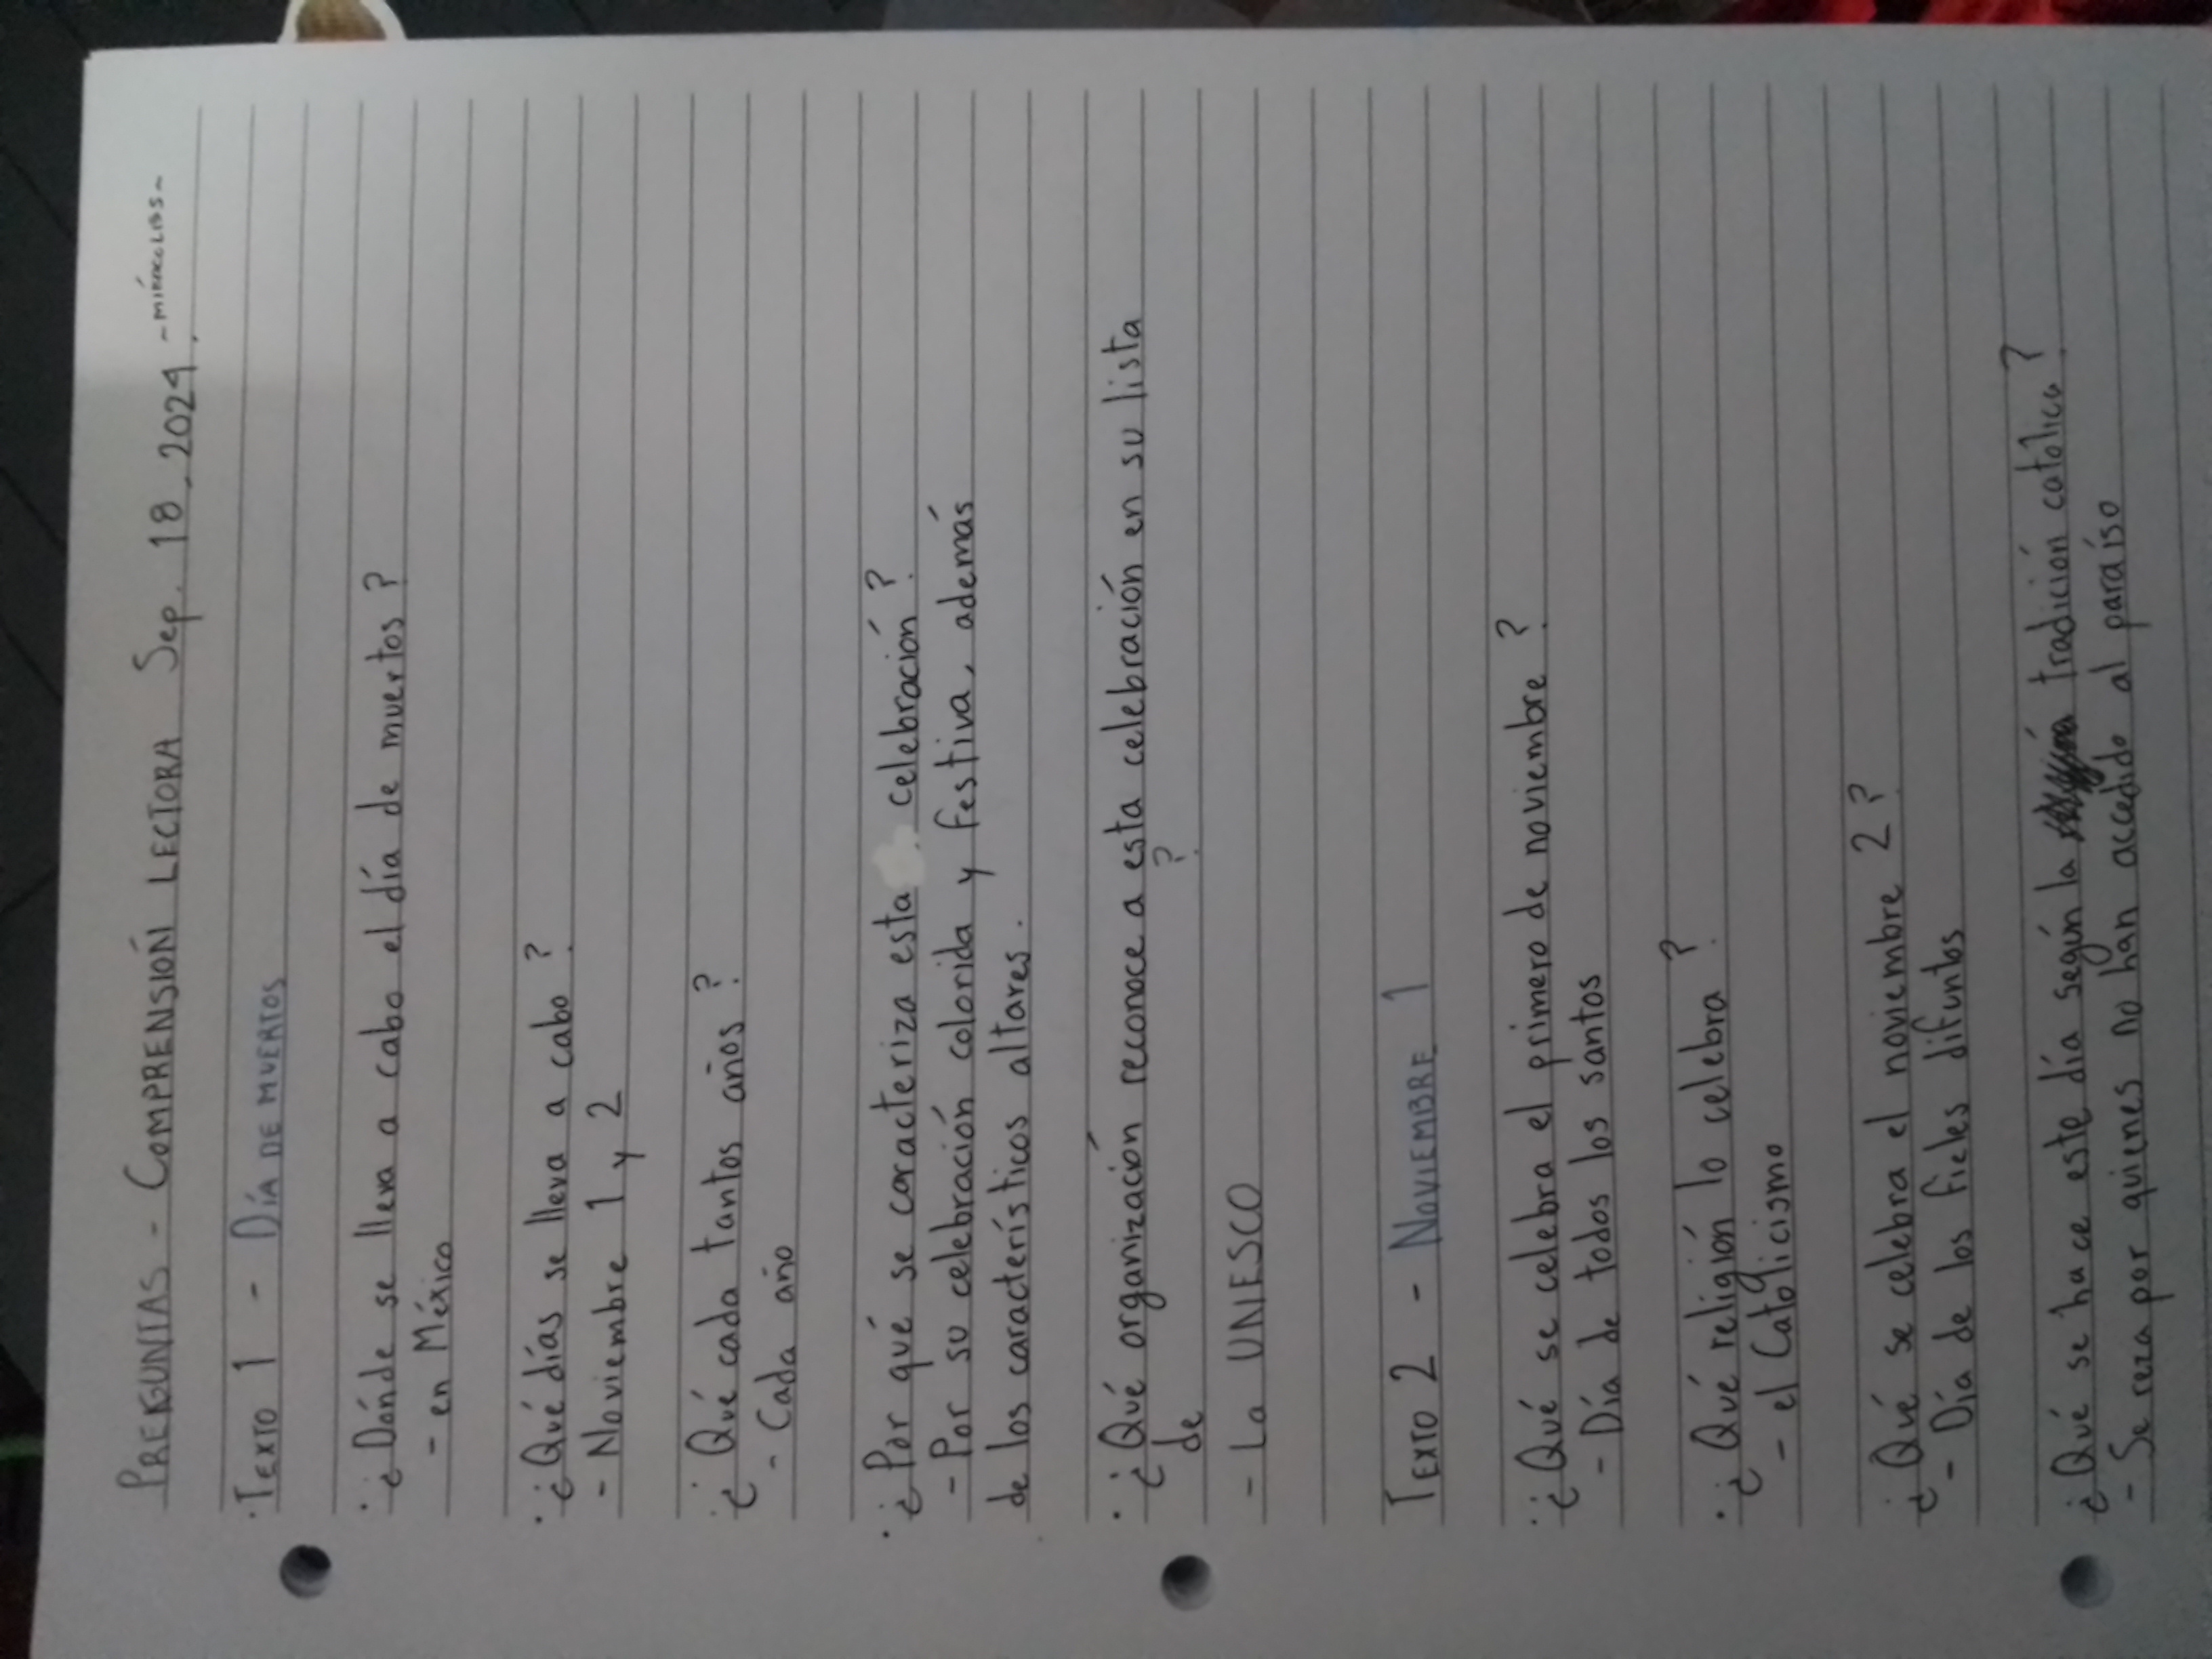 PREGUNTAS - COMPRENSIÓN LECTORA Sep. 18, 2024. -MIÉRCOLES-
TEXTO 1 - DÍA DE MUERTOS
¿Dónde se lleva a cabo el día de muertos?
- en México
¿Qué días se lleva a cabo?
- Noviembre 1 y 2
¿Qué cada tantos años?
- Cada año
¿Por qué se caracteriza esta celebración?
- Por su celebración colorida y festiva, además
de los característicos altares.
¿Qué organización reconoce a esta celebración en su lista
de ?
- La UNESCO
TEXTO 2 - NOVIEMBRE 1
¿Qué se celebra el primero de noviembre?
- Día de todos los santos
¿Qué religión lo celebra?
- el Catolicismo
¿Qué se celebra el noviembre 2?
- Día de los fieles difuntos
¿Qué se hace este día según la tradición católica?
- Se reza por quienes no han accedido al paraíso